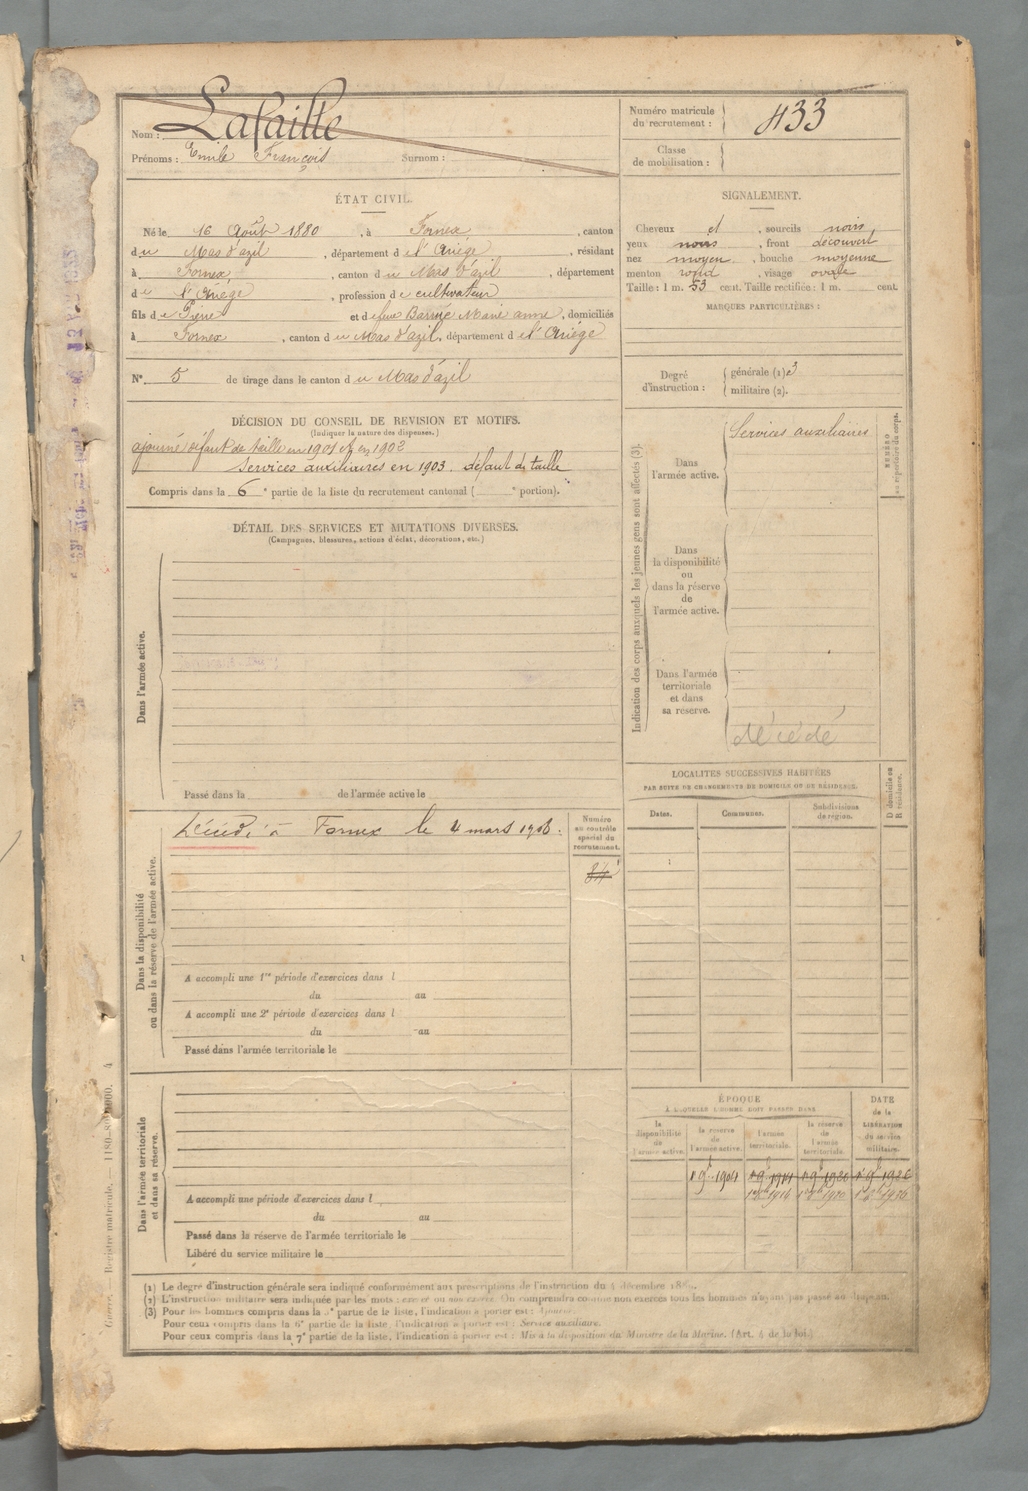 Nom : Lafaille
Prénoms : Emile François Surnom :
Numéro matricule du recrutement : 433
Classe de mobilisation :
ÉTAT CIVIL.
Né le 16 Août 1880, à Fornex, canton
du Mas d'azil, département de l'Ariège, résidant
à Fornex, canton du Mas d'azil, département
de l'Ariège, profession de cultivateur
fils de et de Marie anne, domiciliés
à Fornex, canton du Mas d'azil, département de l'Ariège
N° 5 de tirage dans le canton du Mas d'azil
SIGNALEMENT.
Cheveux et, sourcils noirs
yeux noirs, front découvert
nez moyen, bouche moyenne
menton rond, visage ovale
Taille : 1 m. 53 cent. Taille rectifiée : 1 m. cent.
MARQUES PARTICULIÈRES :
Degré d'instruction : générale (1) 3
militaire (2).
DÉCISION DU CONSEIL DE REVISION ET MOTIFS.
(Indiquer la nature des dispenses.)
ajourné défaut de taille en 1901 et en 1902
Services auxiliaires en 1903. défaut de taille
Compris dans la 6e partie de la liste du recrutement cantonal ( e portion).
DÉTAIL DES SERVICES ET MUTATIONS DIVERSES.
(Campagnes, blessures, actions d'éclat, décorations, etc.)
Dans l'armée active.
Passé dans la de l'armée active le
Indication des corps auxquels les jeunes gens sont affectés (3).
NUMÉRO au répertoire du corps.
Dans l'armée active.
Services auxiliaires
Dans la disponibilité ou dans la réserve de l'armée active.
Dans l'armée territoriale et dans sa réserve.
décédé
Dans la disponibilité ou dans la réserve de l'armée active.
Décédé à Fornex le 4 mars 1906.
Numéro au contrôle spécial du recrutement.
A accompli une 1re période d'exercices dans l
du au
A accompli une 2e période d'exercices dans l
du au
Passé dans l'armée territoriale le
LOCALITÉS SUCCESSIVES HABITÉES
PAR SUITE DE CHANGEMENTS DE DOMICILE OU DE RÉSIDENCE.
Dates.
Communes.
Subdivisions de région.
D domicile ou R résidence.
Dans l'armée territoriale et dans sa réserve.
A accompli une période d'exercices dans l
du au
Passé dans la réserve de l'armée territoriale le
Libéré du service militaire le
ÉPOQUE
À LAQUELLE L'HOMME DOIT PASSER DANS
la disponibilité de l'armée active.
la réserve de l'armée active.
l'armée territoriale.
la réserve de l'armée territoriale.
DATE de la LIBÉRATION du service militaire.
(1) Le degré d'instruction générale sera indiqué conformément aux prescriptions de l'instruction du 4 décembre
(2) L'instruction militaire sera indiquée par les mots : exercé ou non exercé. On comprendra comme non exercés tous les hommes n'ayant pas passé au drapeau.
(3) Pour les hommes compris dans la partie de la liste, l'indication à porter est :
Pour ceux compris dans la 6e partie de la liste, l'indication à porter est : Service auxiliaire.
Pour ceux compris dans la 7e partie de la liste, l'indication à porter est : Mis à la disposition du Ministre de la Marine. (Art. 4 de la loi.)
Registre matricule.